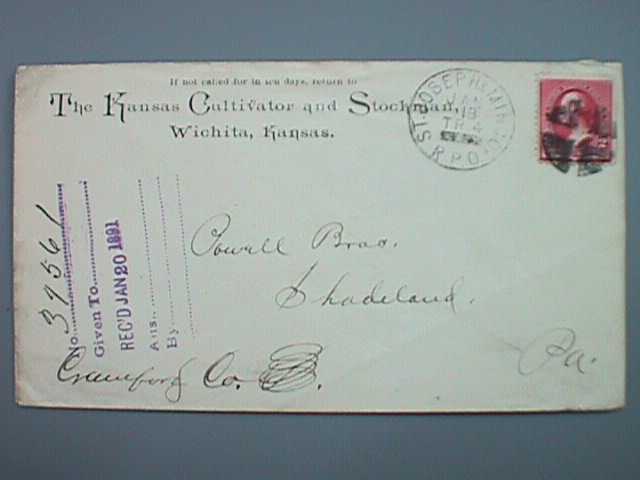 If not called for in ten days, return to
The Kansas Cultivator and Stockman,
Wichita, Kansas.
ST. JOSEPH
JAN
18
TR 4
R.P.O.
Powell Bros.
Shadeland,
Pa.
Crawford Co.
No. 37561
Given To
REC'D JAN 20 1891
Ans.
By